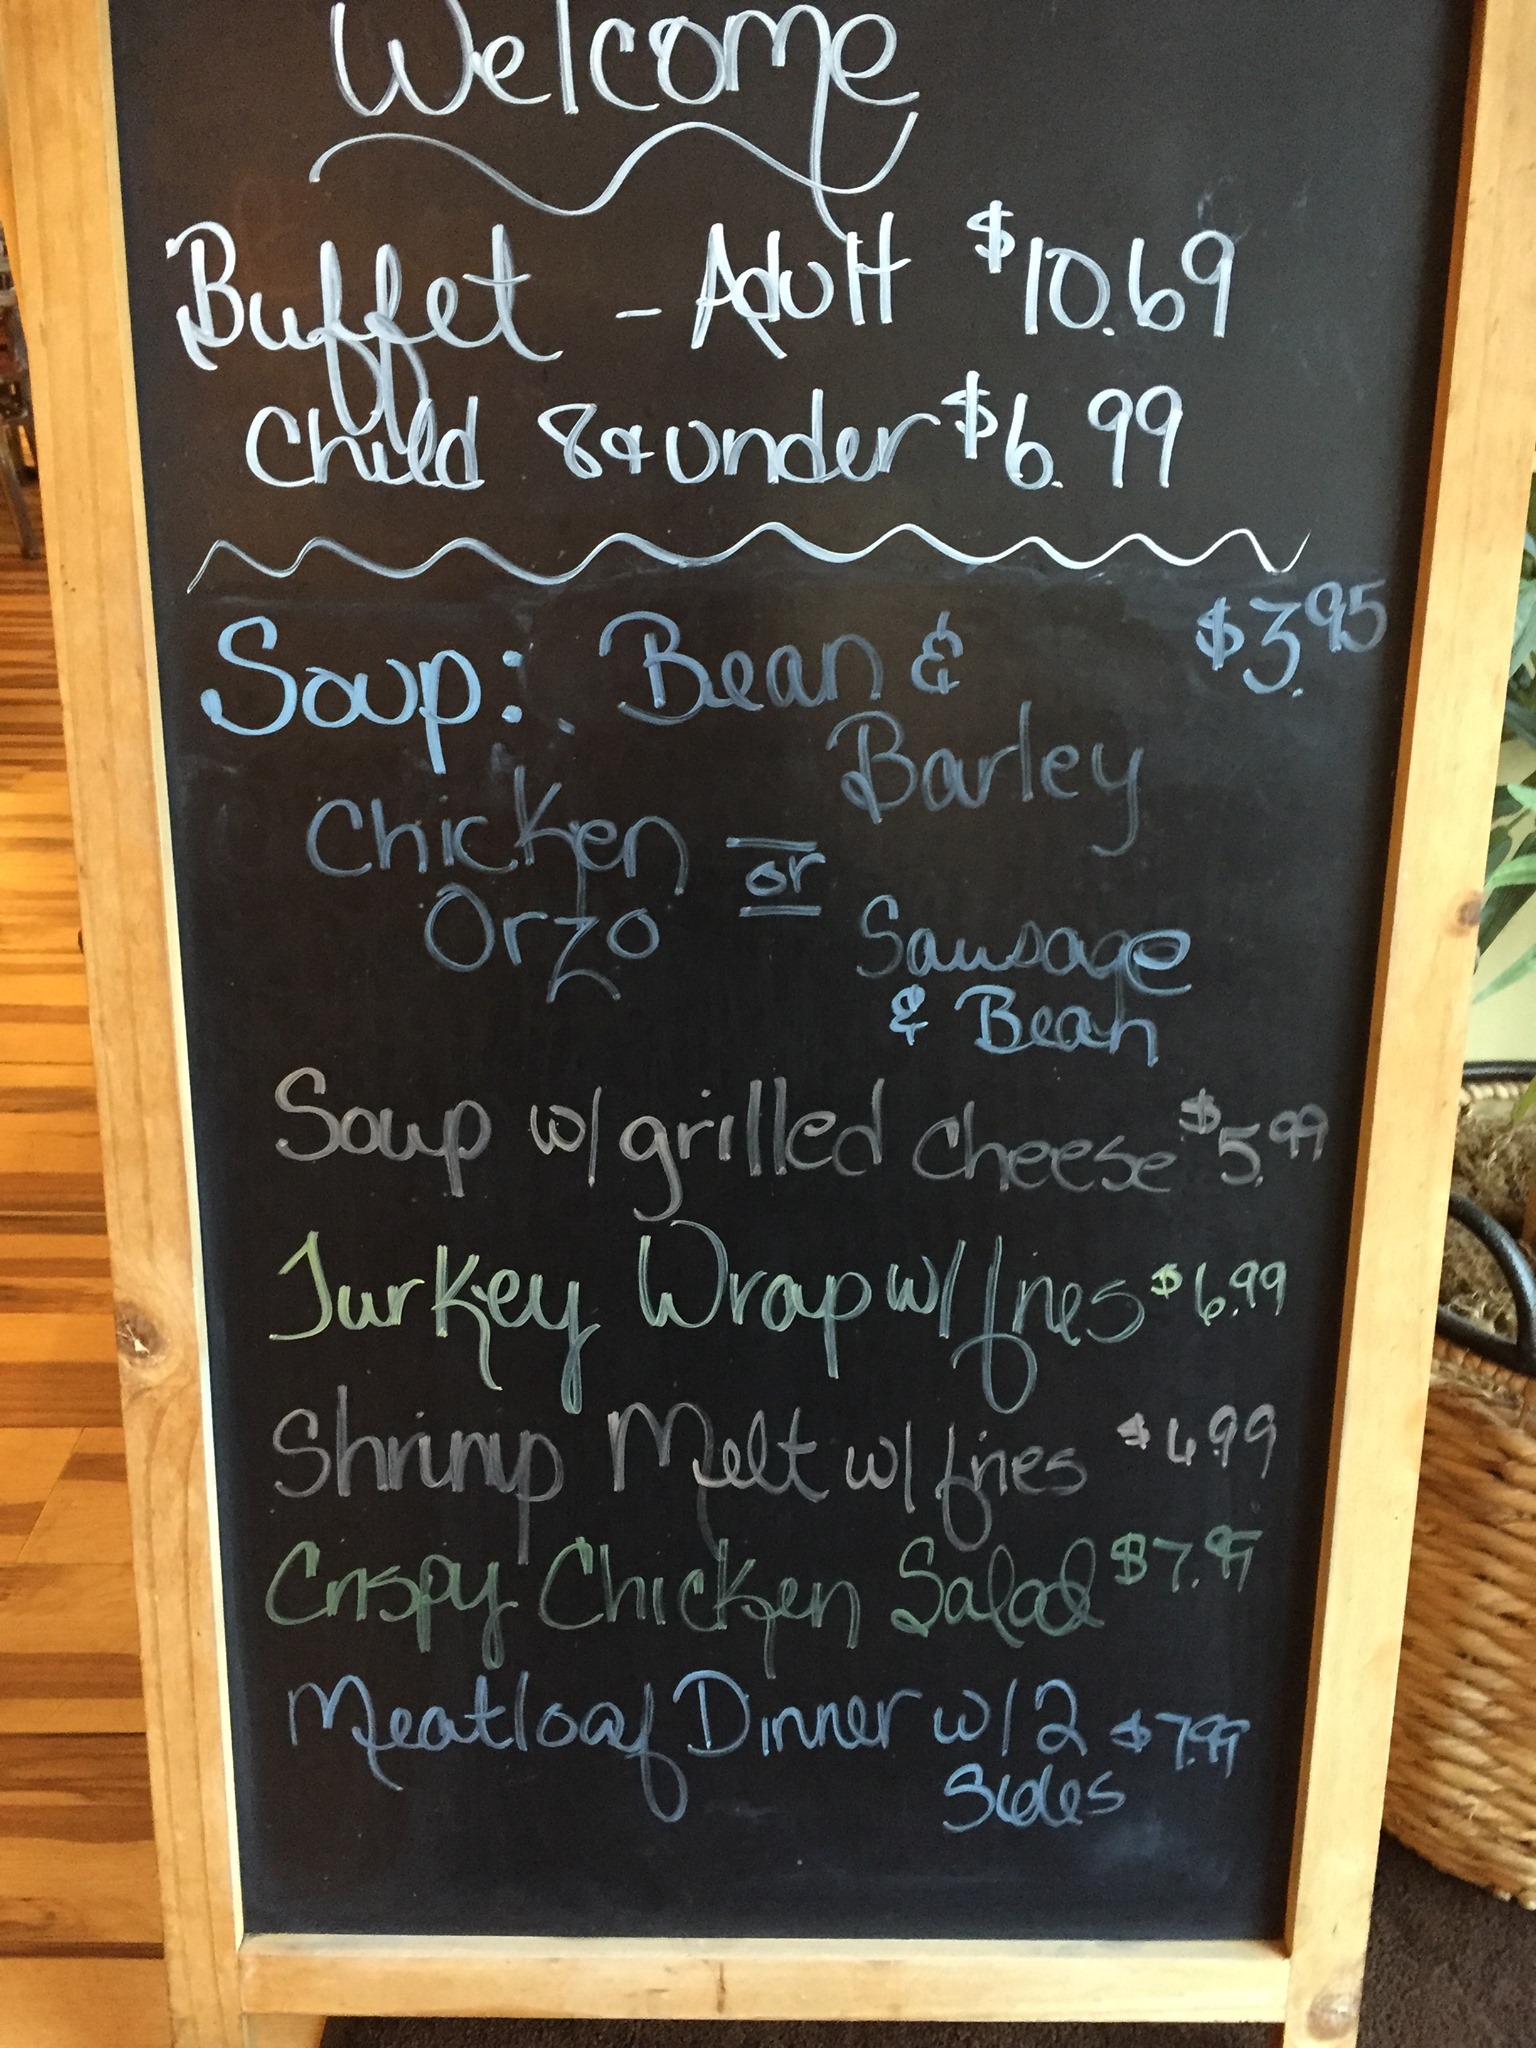 Welcome
Buffet - Adult $10.69
Child 8 & under $6.99
Soup: Bean & $3.95
Barley
Chicken or
Orzo Sausage
& Bean
Soup w/ grilled cheese $5.99
Turkey Wrap w/ fries $6.99
Shrimp Melt w/ fries $6.99
Crispy Chicken Salad $7.99
Meatloaf Dinner w/ 2 $7.99
Sides